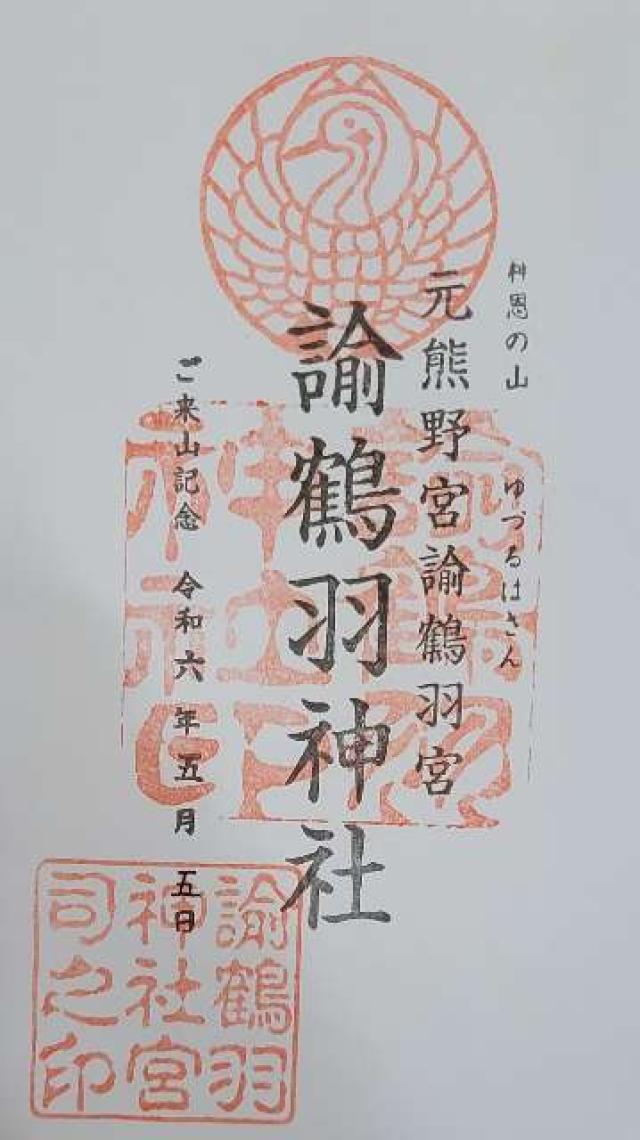 恩の山 ゆづるはさん
元熊野宮諭鶴羽宮
諭鶴羽神社
ご来山記念 令和六年五月 五日
諭鶴羽
神社宮
司之印